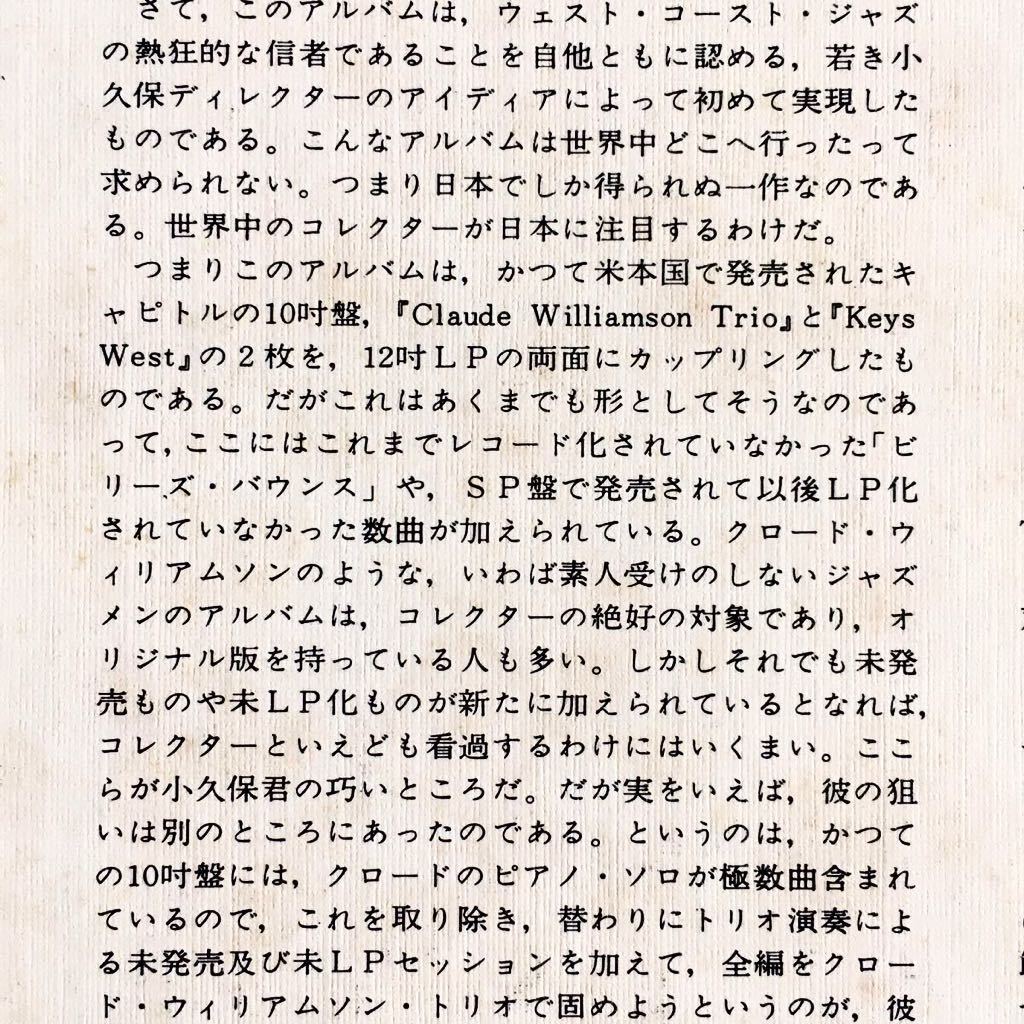 さて，このアルバムは，ウェスト・コースト・ジャズ
の熱狂的な信者であることを自他ともに認める，若き小
久保ディレクターのアイディアによって初めて実現した
ものである。こんなアルバムは世界中どこへ行ったって
求められない。つまり日本でしか得られぬ一作なのであ
る。世界中のコレクターが日本に注目するわけだ。
つまりこのアルバムは，かつて米本国で発売されたキ
ャピトルの10吋盤，『Claude Williamson Trio』と『Keys
West』の２枚を，12吋ＬＰの両面にカップリングしたも
のである。だがこれはあくまでも形としてそうなのであ
って，ここにはこれまでレコード化されていなかった「ビ
リーズ・バウンス」や，ＳＰ盤で発売されて以後ＬＰ化
されていなかった数曲が加えられている。クロード・ウ
ィリアムソンのような，いわば素人受けのしないジャズ
メンのアルバムは，コレクターの絶好の対象であり，オ
リジナル版を持っている人も多い。しかしそれでも未発
売ものや未ＬＰ化ものが新たに加えられているとなれば，
コレクターといえども看過するわけにはいくまい。ここ
らが小久保君の巧いところだ。だが実をいえば，彼の狙
いは別のところにあったのである。というのは，かつて
の10吋盤には，クロードのピアノ・ソロが極数曲含まれ
ているので，これを取り除き，替わりにトリオ演奏によ
る未発売及び未ＬＰセッションを加えて，全編をクロー
ド・ウィリアムソン・トリオで固めようというのが，彼